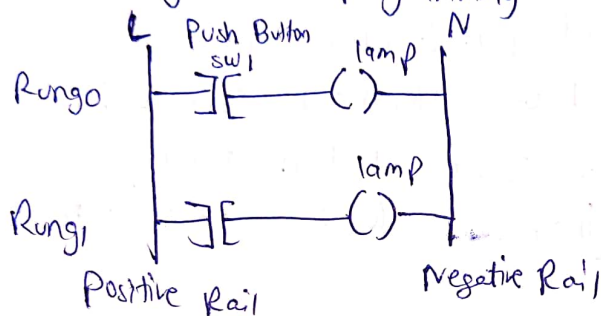 L Push Button lamp N
SW1
Rung0
lamp
Rung1
Positive Rail Negative Rail